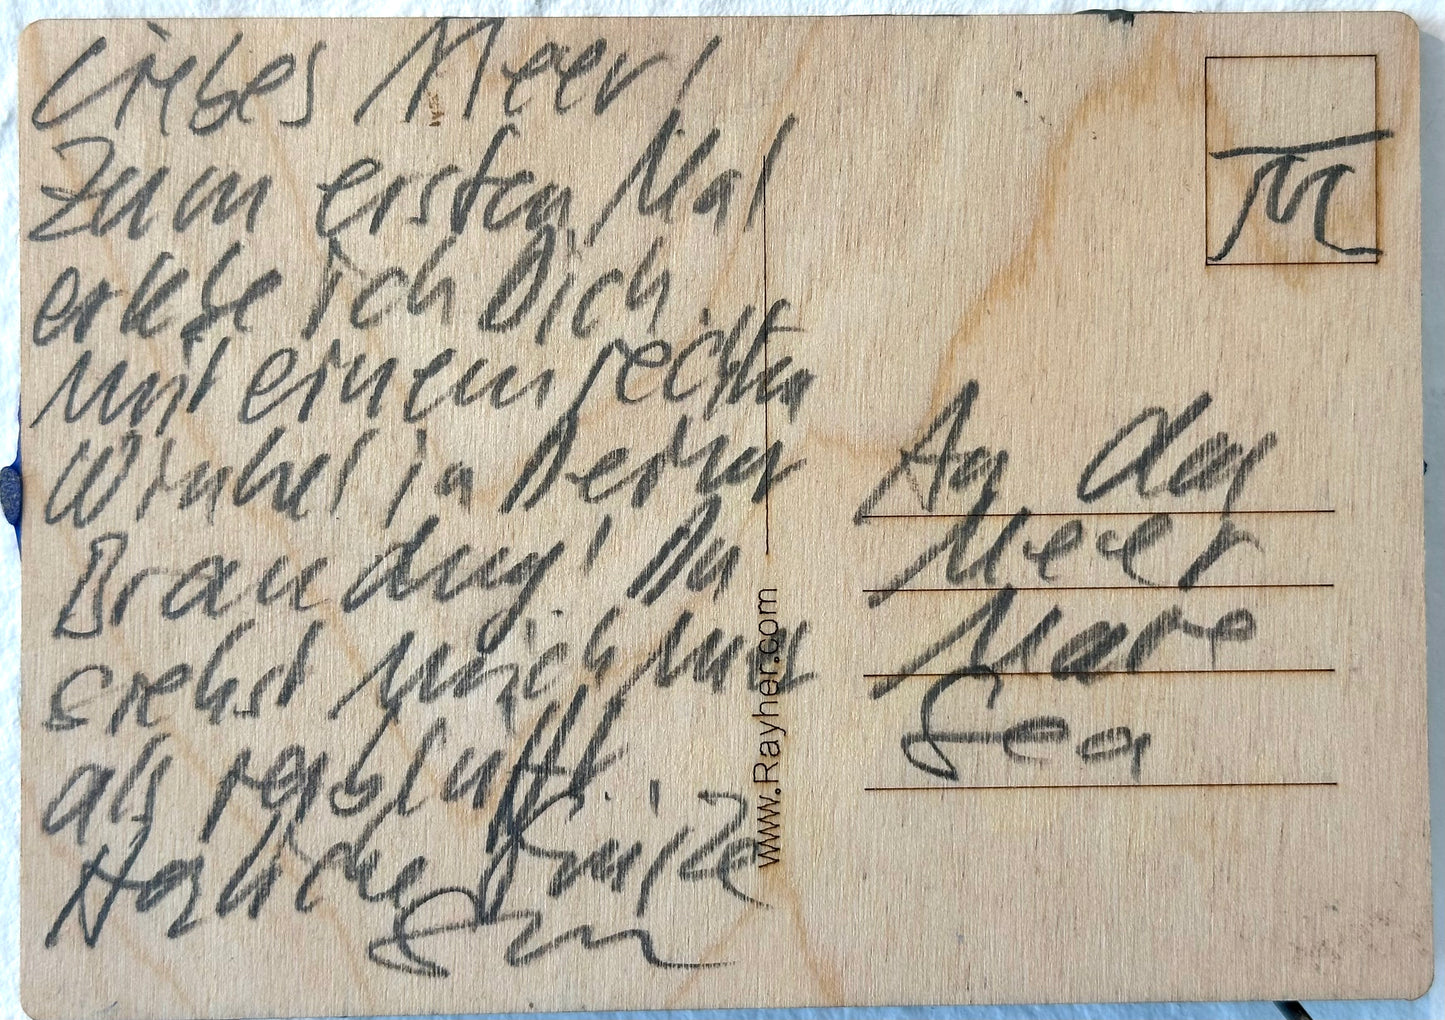 Liebes Meer,
Zum ersten Mal
erlebe ich Dich
mit einem rechten
Winkel in Deiner
Brandung! Du
siehst mich nun
als verblüfft
Herzliche Grüße
An das
Meer
Mare
Sea
www.Rayher.com